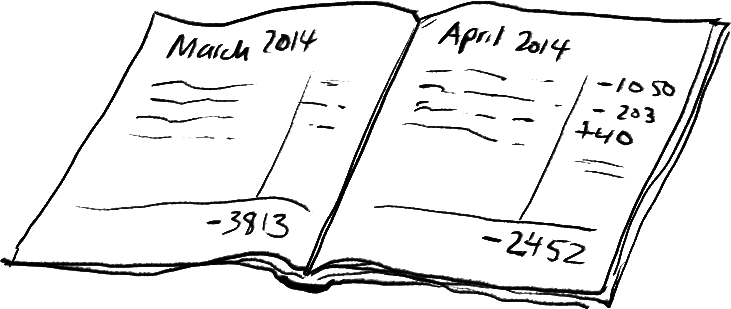 March 2014
-3813
April 2014
-1050
-203
+40
-2452